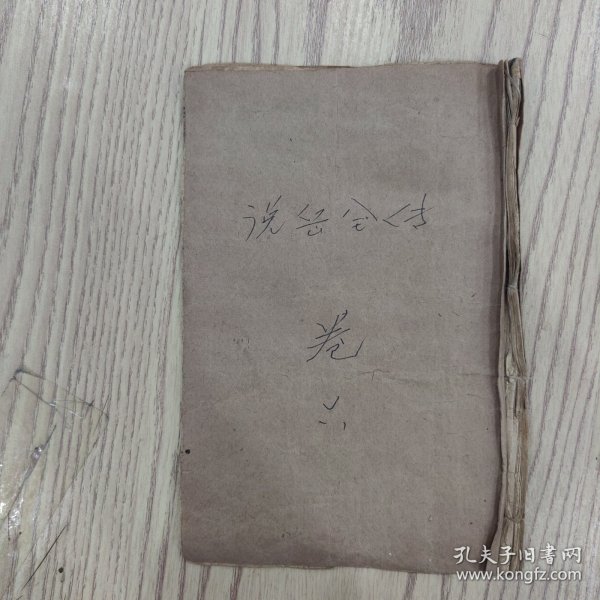 说岳全传
卷
六
孔夫子旧書网
www.kongfz.com